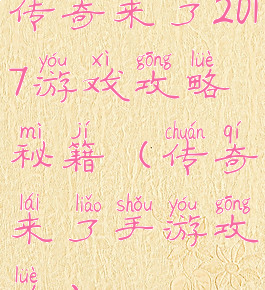 传奇来了201
yóu xì gōng lüè
7游戏攻略
mì jí chuán qí
秘籍(传奇
lái liǎo shǒu yóu gōng
来了手游攻
lüè